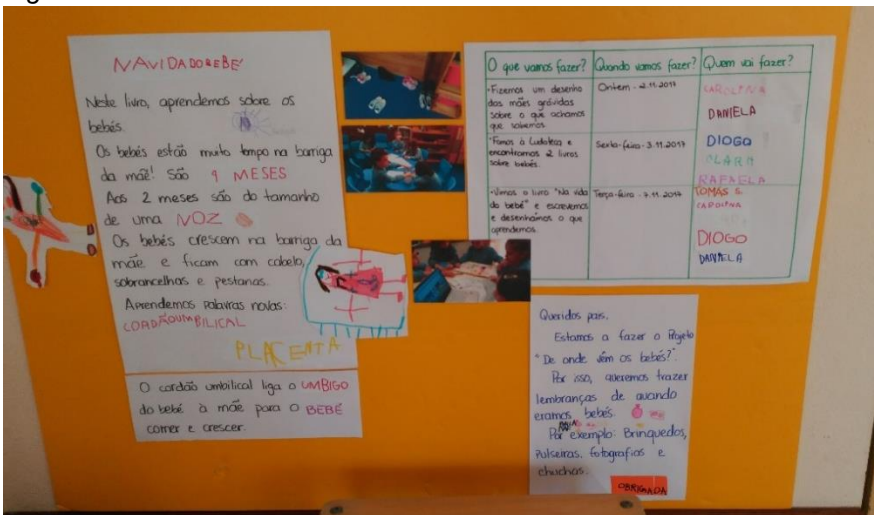 NAVIDADOBEBE
Neste livro, aprendemos sobre os
bebés.
Os bebés estão muito tempo na barriga
da mãe! São 9 MESES
Aos 2 meses são do tamanho
de uma NOZ
Os bebés crescem na barriga da
mãe e ficam com cabelo,
sobrancelhas e pestanas.
Aprendemos palavras novas:
CORDÃOUMBILICAL
PLACENTA
O cordão umbilical liga o UMBIGO
do bebé à mãe para o BEBÉ
comer e crescer.
O que vamos fazer?
Quando vamos fazer?
Quem vai fazer?
-Fizemos um desenho
das mães grávidas
sobre o que achamos
que sabemos.
Ontem - 2.11.2017
CAROLINA
DANIELA
-Fomos à Ludoteca e
encontramos 2 livros
sobre bebés.
Sexta-feira - 3.11.2017
DIOGO
CLARA
RAFAELA
-Vimos o livro "Na vida
do bebé" e escrevemos
e desenhámos o que
aprendemos.
Terça-feira - 7.11.2017
TOMÁS S.
CAROLINA
DIOGO
DANIELA
Queridos pais,
Estamos a fazer o Projeto
"De onde vêm os bebés?".
Por isso, queremos trazer
lembranças de quando
eramos bebés.
Por exemplo: Brinquedos,
Pulseiras, fotografias e
chuchas.
OBRIGADA